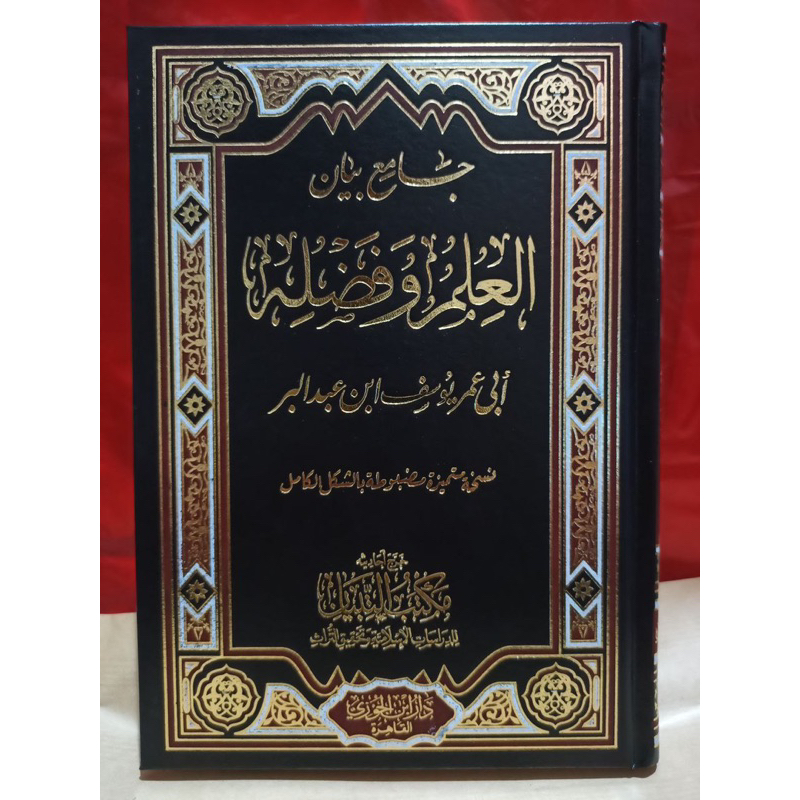 جامع بيان
العِلمُ وَفَضْلِهِ
أبي عمر يوسف ابن عبد البر
نسخة متميزة مضبوطة بالشكل الكامل
خرج أحاديثه
مكتب التبيان
للدراسات الإسلامية وتحقيق التراث
دار ابن الجوزي
القاهرة